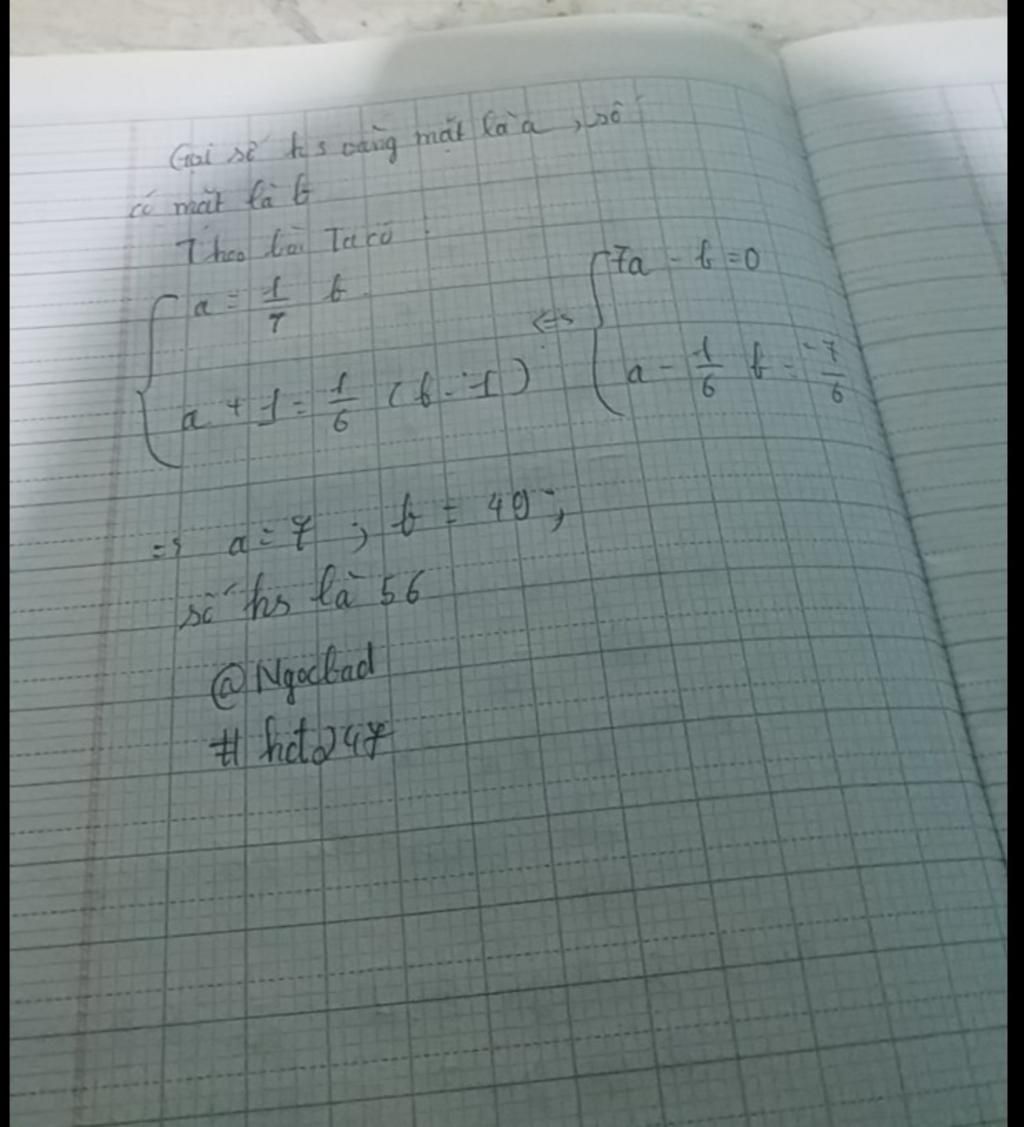 Gọi số hs vắng mặt là a, số
có mặt là b
Theo bài Ta có
a = 1/7 b
a + 1 = 1/6 (b - 1)
<=>
7a - b = 0
a - 1/6 b = -7/6
=> a = 7 ; b = 49 ;
số hs là 56
@Ngocbad
# hct247